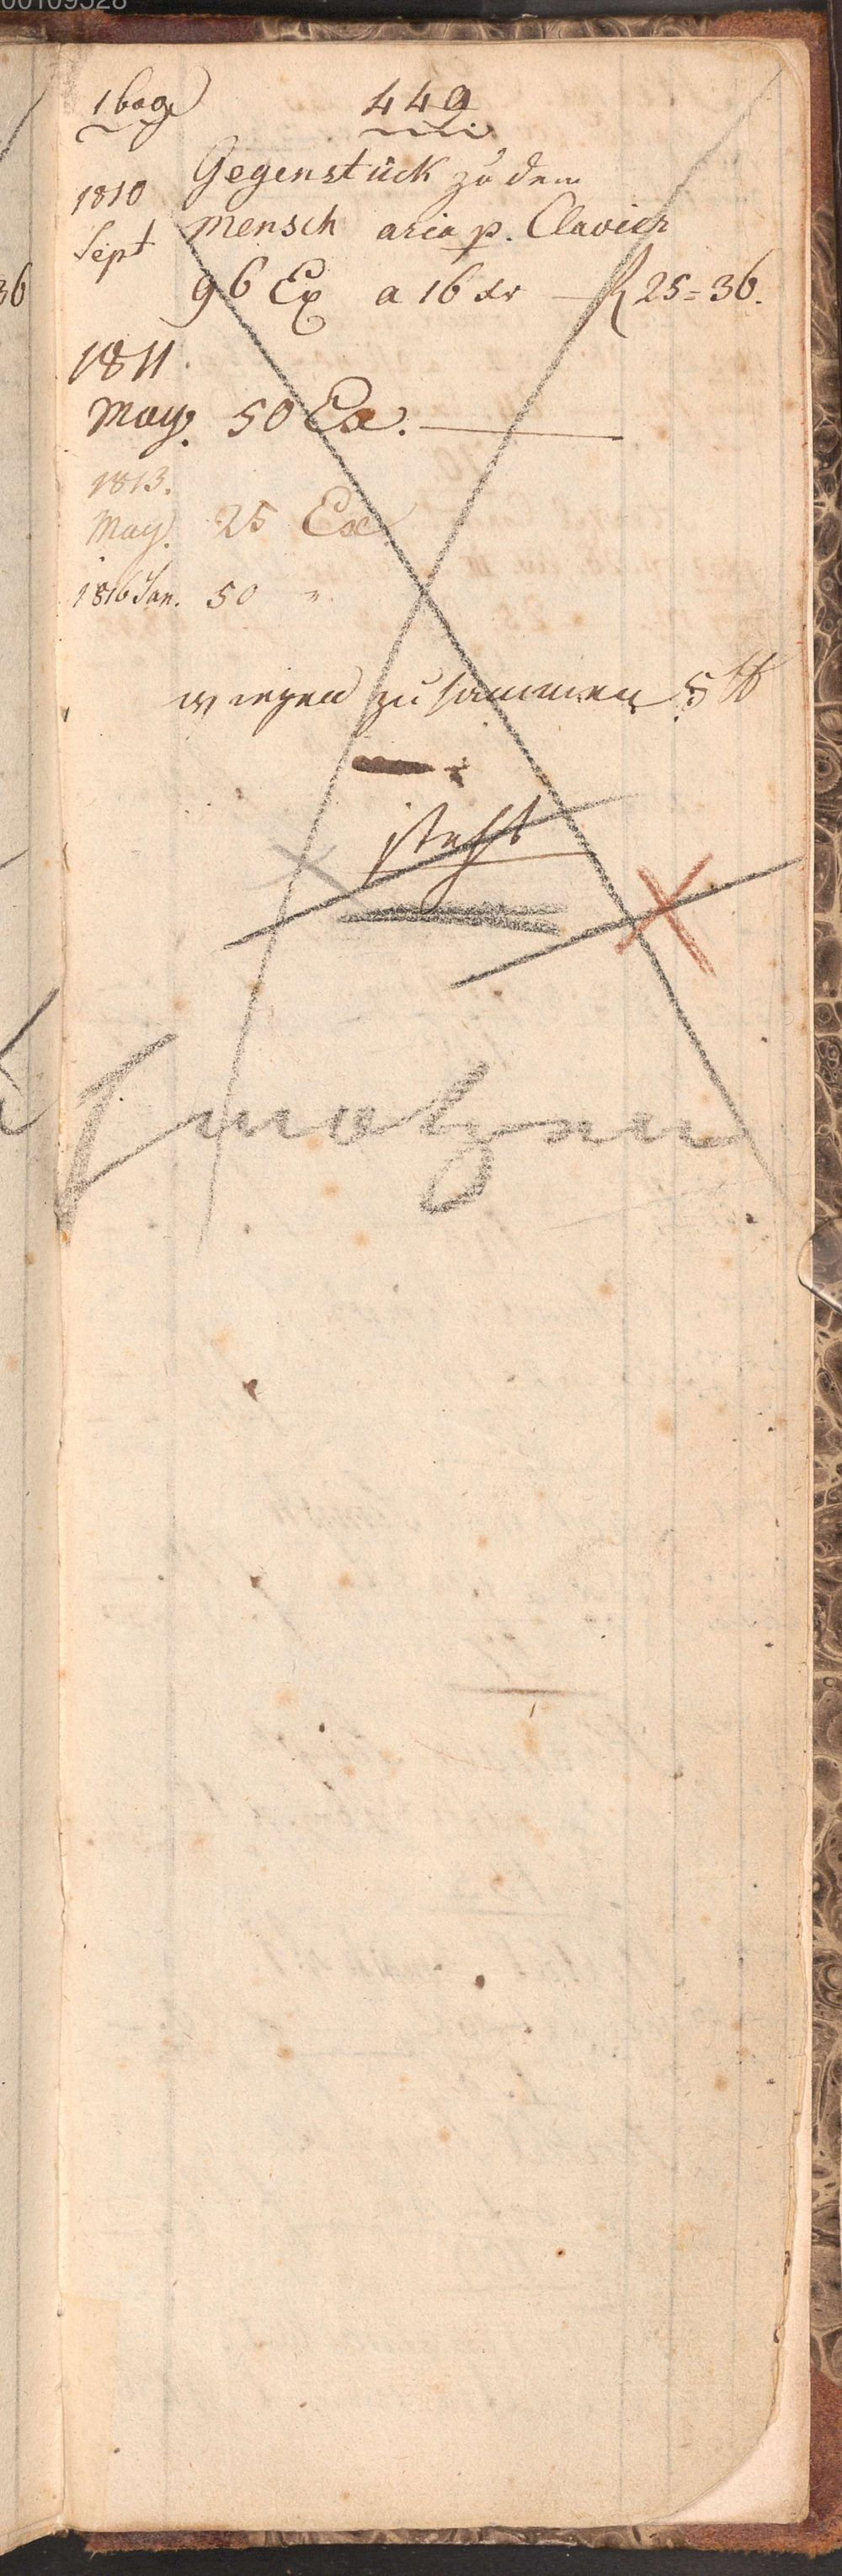 1 bog 449
1810 Gegenstück zu dem
Sept Mensch aria p. Clavier
96 Ex a 16 xr — f 25=36.
1811.
May. 50 Ex.
1813.
May. 25 Ex.
1816 Jan. 50 "
wiegen zusammen 5 ℔
steht
36